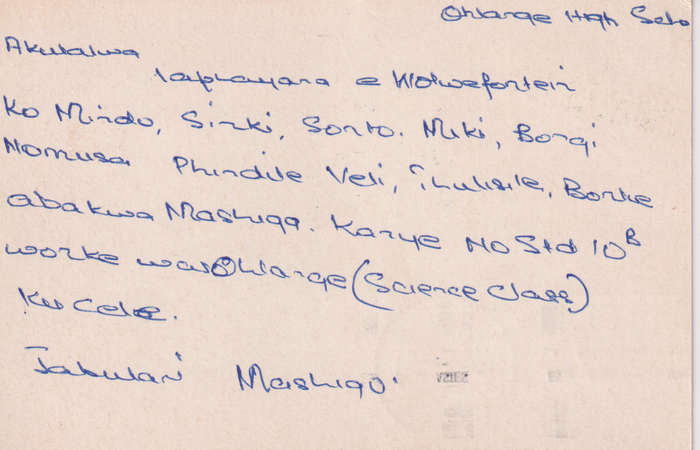 Ohlange High Scho
Akulalwa
laphayana e Wolwefontein
Ko Mindo, Sinki, Sonto. Miki, Bongi
Nomusa Phindile Veli, Thulisile, Bonke
abakwa Mashigo. Kanye No Std 10B
wonke wasOhlange (Science Class)
Ku Cele.
Jabulani Mashigo.